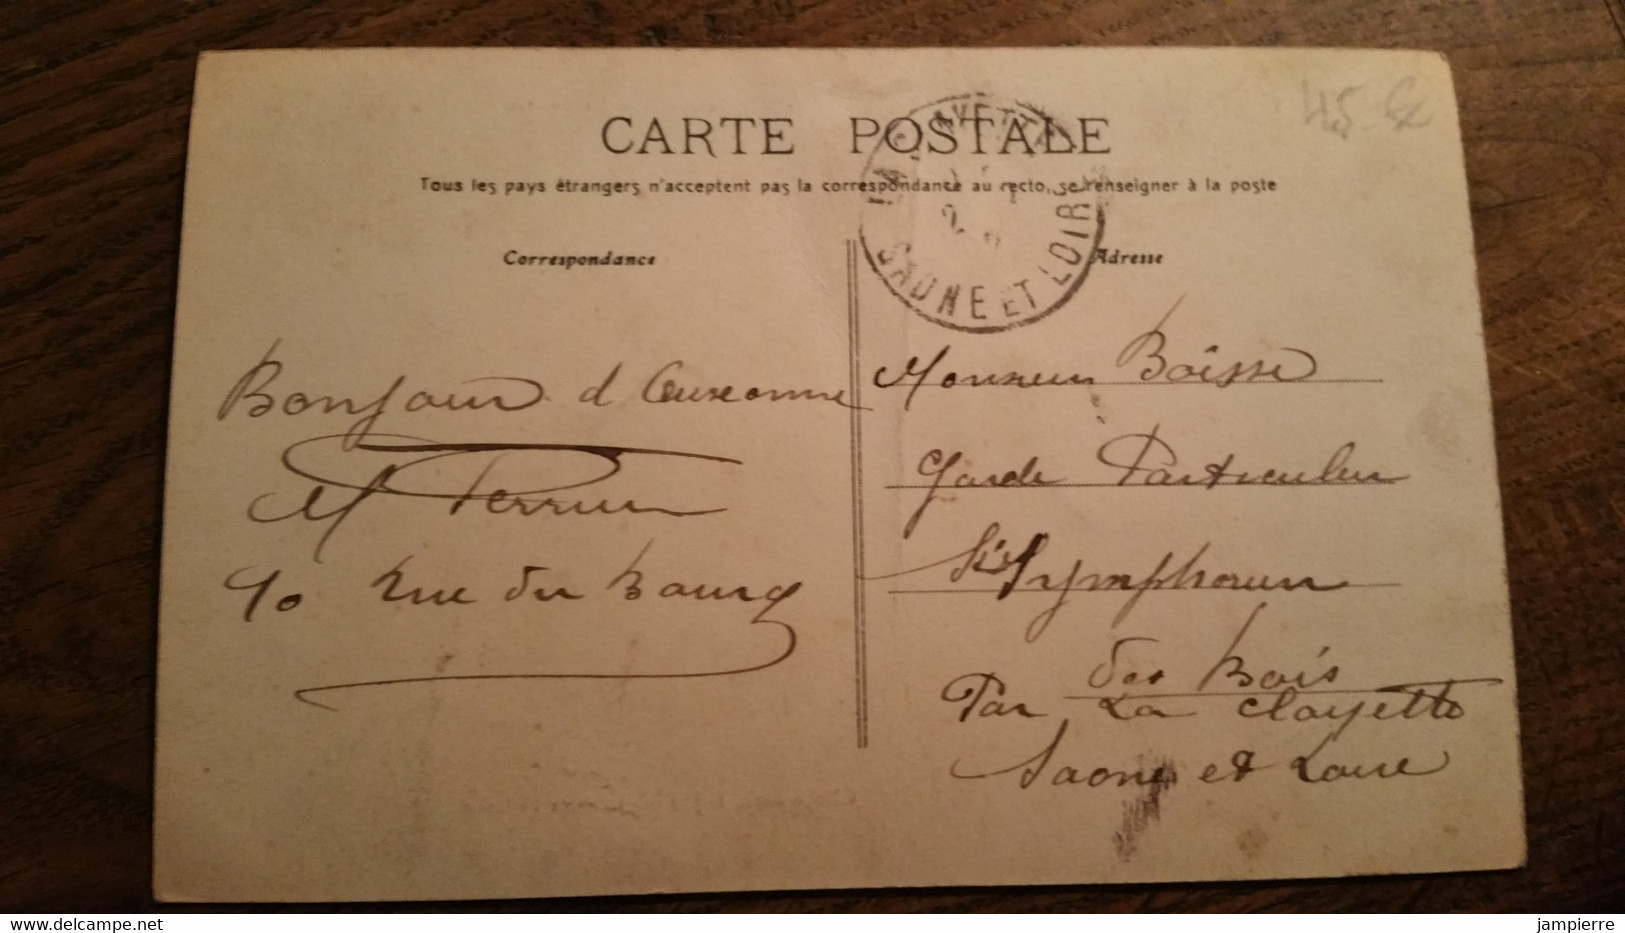 45 €
CARTE POSTALE
Tous les pays étrangers n'acceptent pas la correspondance au recto, se renseigner à la poste
Correspondance
Adresse
SAONE ET LOIRE
Bonjour d'Auxonne
M Perrin
40 Rue du Bourg
Monsieur Boisse
Garde Particulier
St Symphorien
des Bois
Par La Clayette
Saone et Loire
delcampe.net
jampierre